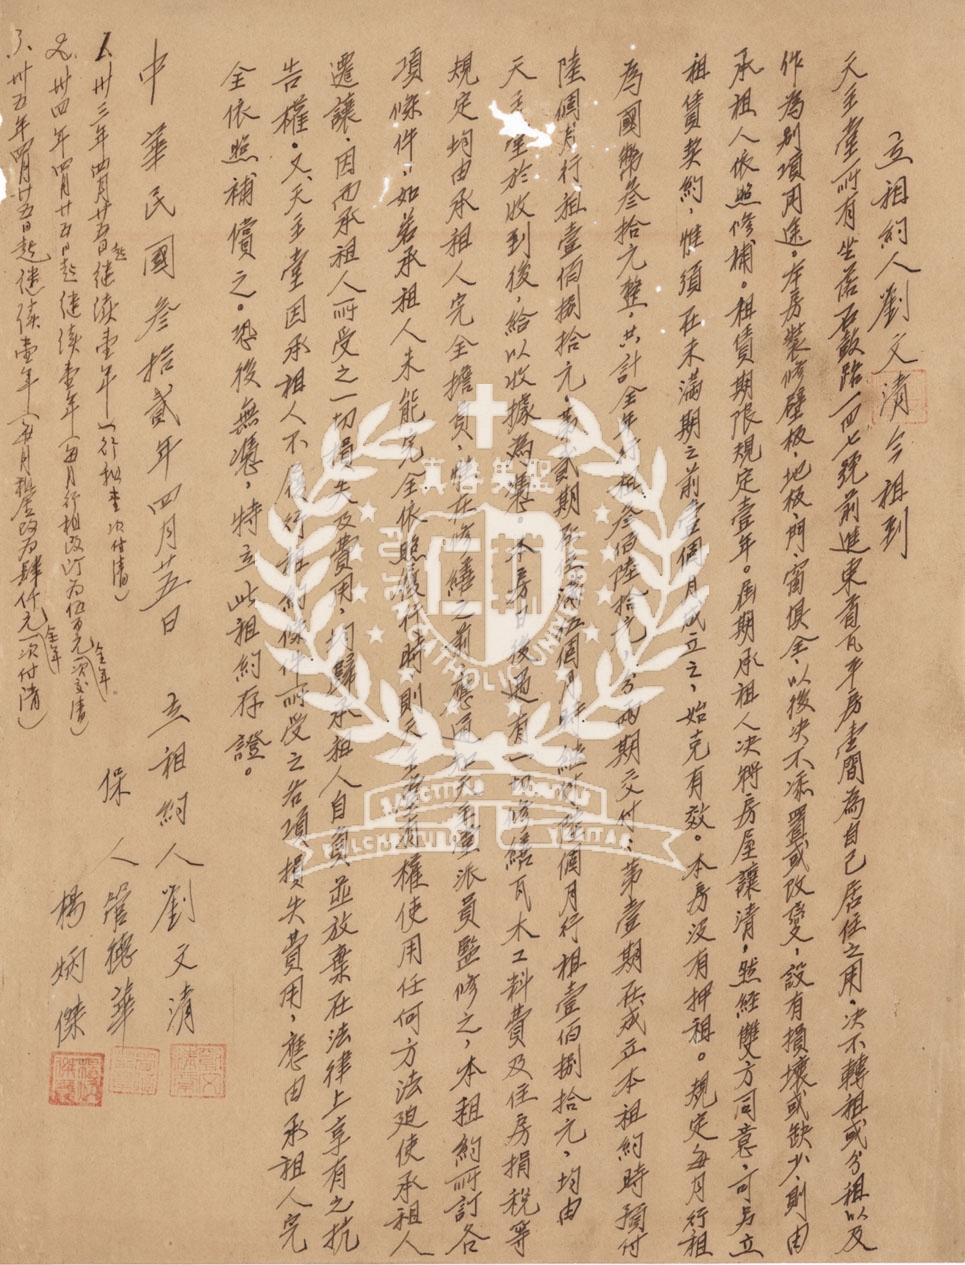 立租約人劉文清今租到
天主堂所有坐落石鼓路一四七號前進東首瓦平房壹間為自己居住之用，决不轉租或分租以及
作為别項用途。本房裝修壁板、地板、門、窗俱全，以後决不添置或改變，設有損壞或缺少，則由
承租人依照修補。租賃期限規定壹年。屆期承租人决將房屋讓清，然經雙方同意，可另立
租賃契約，惟須在未滿期之前壹個月成立之，始克有效。本房没有押租。規定每月行租
為國幣叁拾元整，共計全年行租叁佰陸拾元，分兩期交付，第壹期在成立本租約時預付
陸個月行租壹佰捌拾元。第貳期在住滿伍個月時繼付陸個月行租壹佰捌拾元，均由
天主堂於收到後，給以收據為憑。本房日後遇有一切修繕瓦木工料費及住房捐税等
規定均由承租人完全擔負，惟在修繕之前，應通知天主堂派員監修之，本租約所訂各
項條件，如若承租人未能完全依照履行時，則天主堂有權使用任何方法廹使承租人
遷讓，因而承租人所受之一切損失及費用，均歸承租人自負並放棄在法律上享有之抗
告權。又天主堂因承租人不履行租約條件所受之各項損失費用，應由承租人完
全依照補償之。恐後無憑，特立此租約存證。
中華民國叁拾貳年四月廿五日　立租約人 劉文清
保人 管德華
楊炳傑
1、卅三年四月廿五日起继续壹年（行租壹次付清）
2、卅四年四月廿五日起继续壹年（每月行租改订为伍百元全年一次交清）
3、卅五年四月廿五日起继续壹年（每月租金改为肆仟元全年一次付清）
真善美聖
CATHOLIC
SANCTITAS
PULCHRITUDO
VERITAS